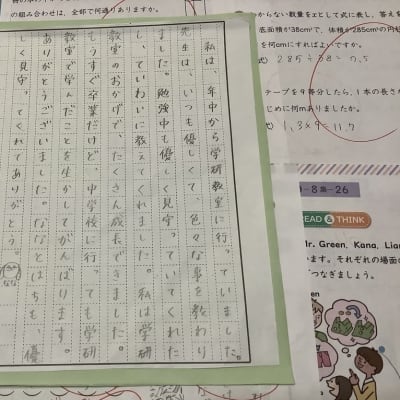 の組み合わせは、全部で何通りありますか。
私は、年中から学研教室に行っていました。
先生は、いつも優しくて、色々な事を教わり
ました。勉強中も優しく見守っていてくれた
し、ていねいに教えてくれました。私は学研
教室のおかげで、たくさん成長できました。
もうすぐ卒業だけど、中学校に行っても学研
教室で学んだことを生かしてがんばります。
ありがとうございました。ななとはちも、優
しく見守ってくれてありがとう。
からない数量をxとして式に表し、答えを
底面積が38cm²で、体積が285cm³の円柱
を何cmにすればよいですか。
285÷38=7.5
テープを9等分したら、1本の長さが
じめに何mありましたか。
1.3×9=11.7
-8集-26
READ & THINK
Mr. Green, Kana, Lian
います。それぞれの場面の
つなぎましょう。